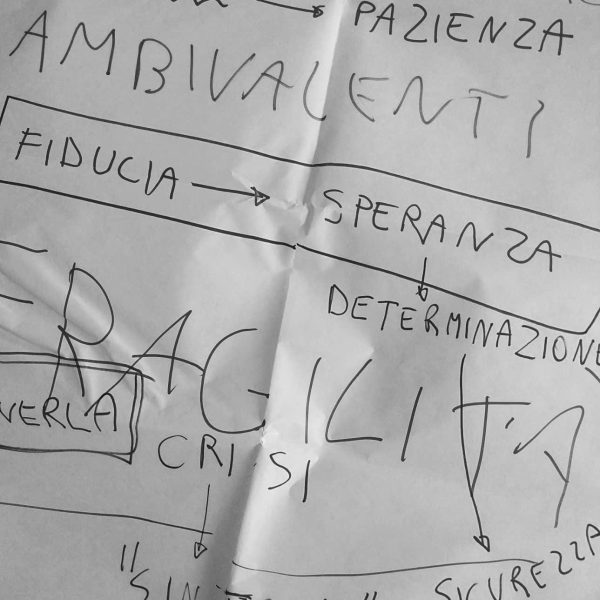 PAZIENZA
AMBIVALENTI
FIDUCIA → SPERANZA
DETERMINAZIONE
FRAGILITÀ
VERLA
CRISI
SICUREZZA